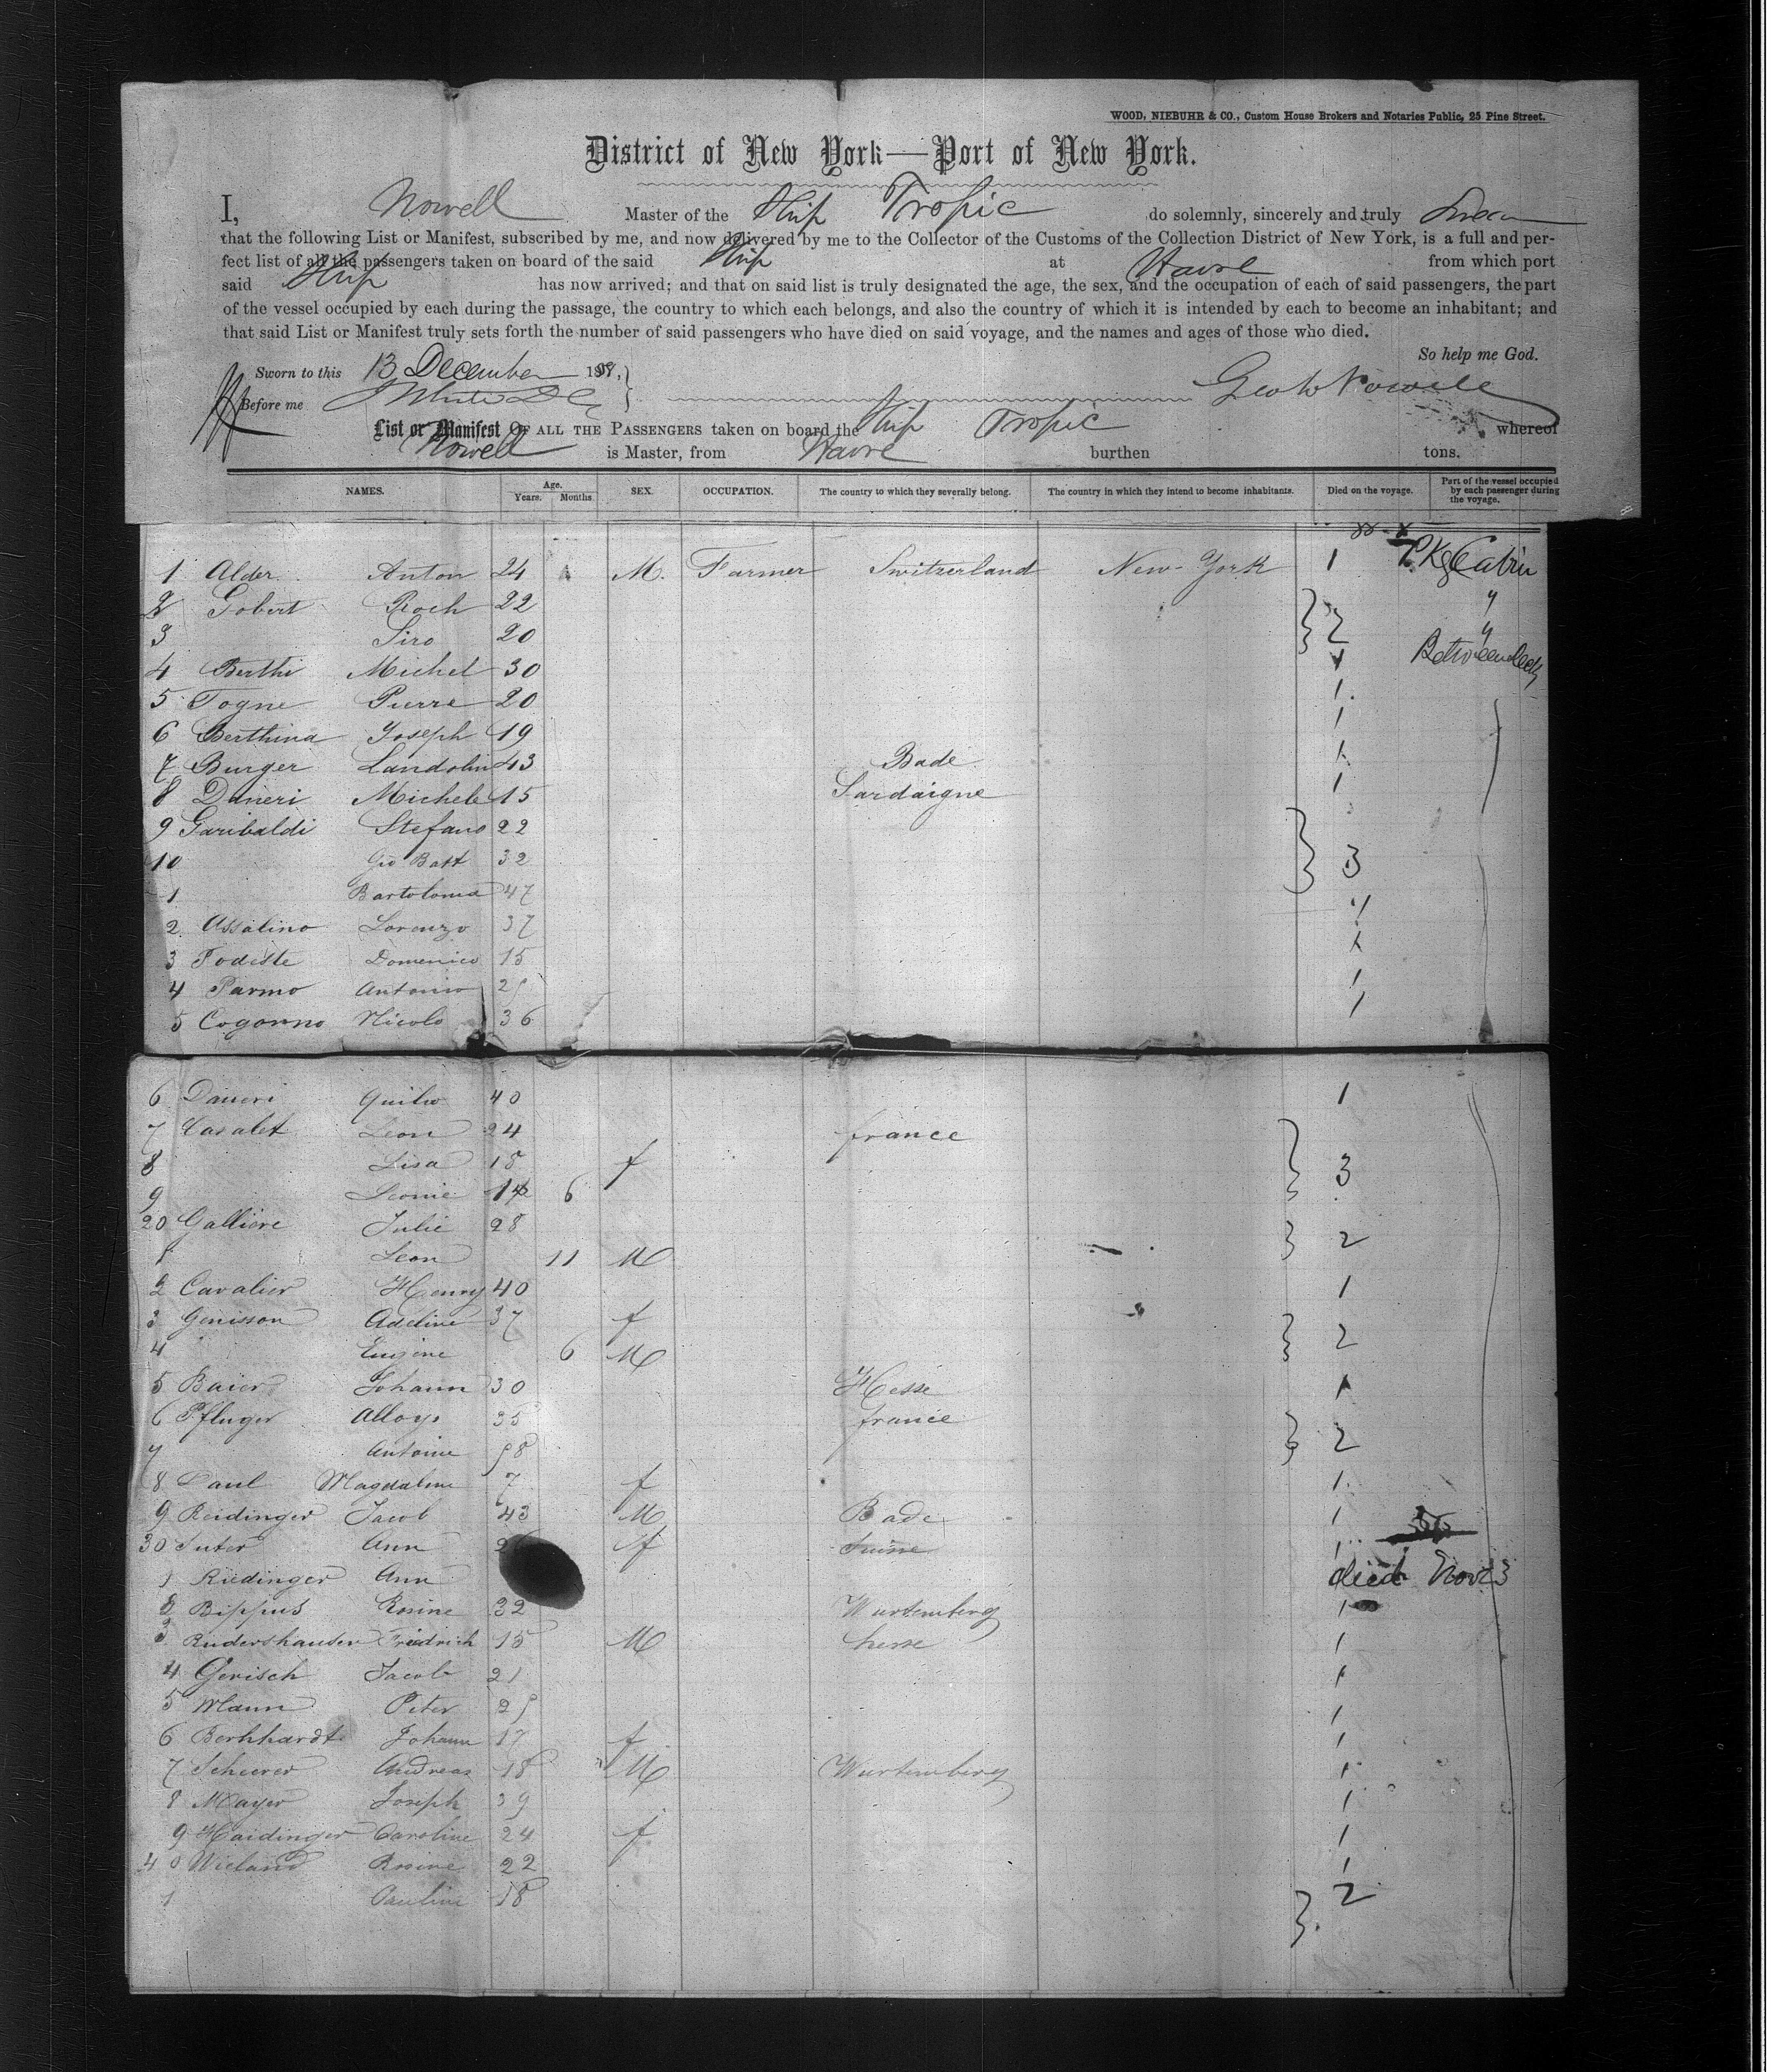 WOOD, NIEBUHR & CO., Custom House Brokers and Notaries Public, 25 Pine Street.
District of New York—Port of New York.
I, Nowell Master of the Ship Tropic do solemnly, sincerely and truly Swear
that the following List or Manifest, subscribed by me, and now delivered by me to the Collector of the Customs of the Collection District of New York, is a full and per-
fect list of all the passengers taken on board of the said Ship at Havre from which port
said Ship has now arrived; and that on said list is truly designated the age, the sex, and the occupation of each of said passengers, the part
of the vessel occupied by each during the passage, the country to which each belongs, and also the country of which it is intended by each to become an inhabitant; and
that said List or Manifest truly sets forth the number of said passengers who have died on said voyage, and the names and ages of those who died.
So help me God.
Sworn to this 13 December
Before me Geo W Nowell
List or Manifest OF ALL THE PASSENGERS taken on board the Ship Tropic whereof
Nowell is Master, from Havre burthen tons.
NAMES. Age. Years. Months SEX. OCCUPATION. The country to which they severally belong. The country in which they intend to become inhabitants. Died on the voyage. Part of the vessel occupied by each passenger during the voyage.
1 Alder Anton 24 M. Farmer Switzerland New-York 1 Cabin
2 Gobert Roch 22 2 "
3 Siro 20 "
4 Berthi Michel 30 1 Betweendeck
5 Togne Pierre 20 1
6 Berthina Joseph 19 1
7 Burger Landolin 43 Bade 1
8 Daneri Michele 15 Sardaigne 1
9 Garibaldi Stefano 22
10 Gio Batt 32 3
1 Bartolomea 47
2 Assalino Lorenzo 37 1
3 Podeste Domenico 15 1
4 Parmo Antonio 1
5 Cogorno Nicolo 36 1
6 Daneri 40 1
7 Leon 24 france
8 Lisa 18 f 3
9 Leonie 6
20 Galliere Julie 28 2
1 Leon 11 M
2 Cavalier Henry 40 1
3 Genisson Adeline 37 f 2
4 Eugene 6 M
5 Baier Johann 30 Hesse 1
6 Pfluger Alloys 35 france 2
7 Antoine
8 Paul Magdalene 7 f 1
9 Reidinger Jacob 43 M Bade 1
30 Suter Ann f Suisse 1
1 Riedinger Ann died Nov 23
2 Bippus Rosine 32 Wurtemberg 1
3 Rudershausen Friedrich 15 M hesse 1
4 Gerisch Jacob 21 1
5 Mann Peter 1
6 Berhhardt Johann 17 f 1
7 Scheerer Andreas 18 M Wurtemberg 1
8 Mayer Joseph 39 1
9 Haidinger Caroline 24 f 1
40 Wieland Rosine 22 1
1 Pauline 18 2